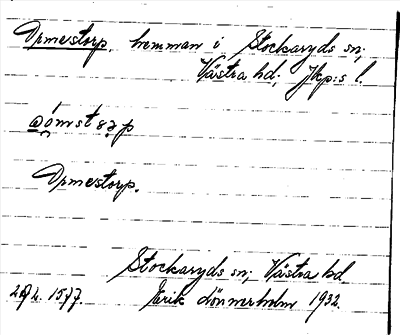 Ormestorp, hemman i Stockaryds sn;
Västra hd, Jkp:s l.
Ormestorp.
Stockaryds sn; Västra hd
Erik Lönnerholm 1932.